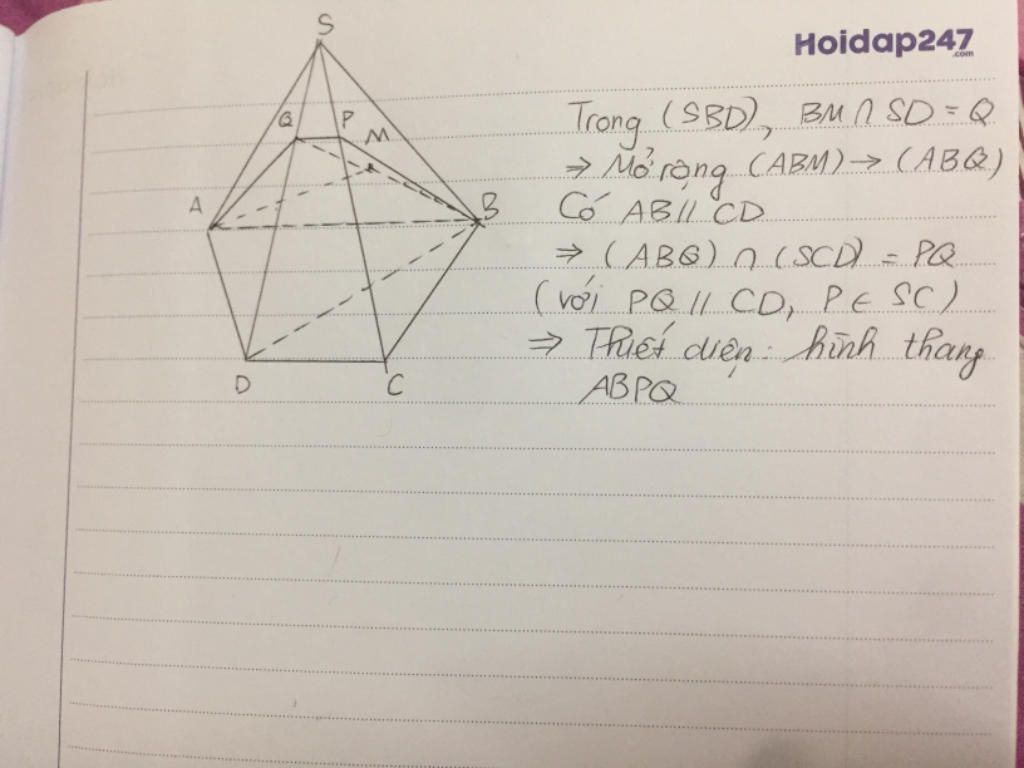 Hoidap247
.com
S
Q P M
A
B
D
C
Trong (SBD), BM ∩ SD = Q
⇒ Mở rộng (ABM) → (ABQ)
Có AB // CD
⇒ (ABQ) ∩ (SCD) = PQ
(với PQ // CD, P ∈ SC)
⇒ Thiết diện: hình thang
ABPQ